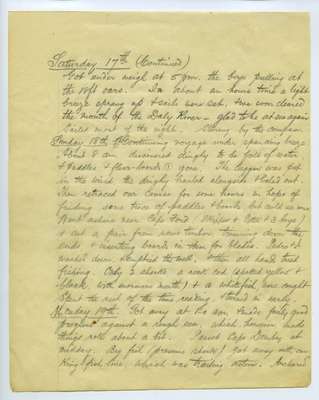 Saturday 17th (Continued)
Got under weigh at 5 pm. the boys pulling at
the 18ft oars. In about an hours time a light
breeze sprang up & sails were set, & we soon cleared
the mouth of the Daly River — glad to be at sea again
Sailed most of the night. Steering by the compass
Sunday 18th. Continuing voyage under spanking breeze.
About 8 am. discovered dinghy to be full of water
& paddles & floor-boards gone. The lugger was put
in the wind, the dinghy hauled alongside & baled out
Then retraced our course for some hours in hopes of
finding some trace of paddles & boards, but with no success
Went ashore near Cape Ford. & 3 boys)
& cut a pair from some timber, trimming down the
ends & inserting boards in them for blades.
washed down, & then all hands tried
fishing. Only 2 shots a rock cod (spotted yellow &
black, with enormous mouth) & a whitefish, were caught
Spent the rest of the time reading & turned in early.
Monday 19th. Got away at 4 am. & made fairly good
progress against a rough sea which however made
things roll about a bit. Passed Cape Scott by at
midday. Big fish (presume shark) got away with our
King fish line, which was trailing astern. Anchored